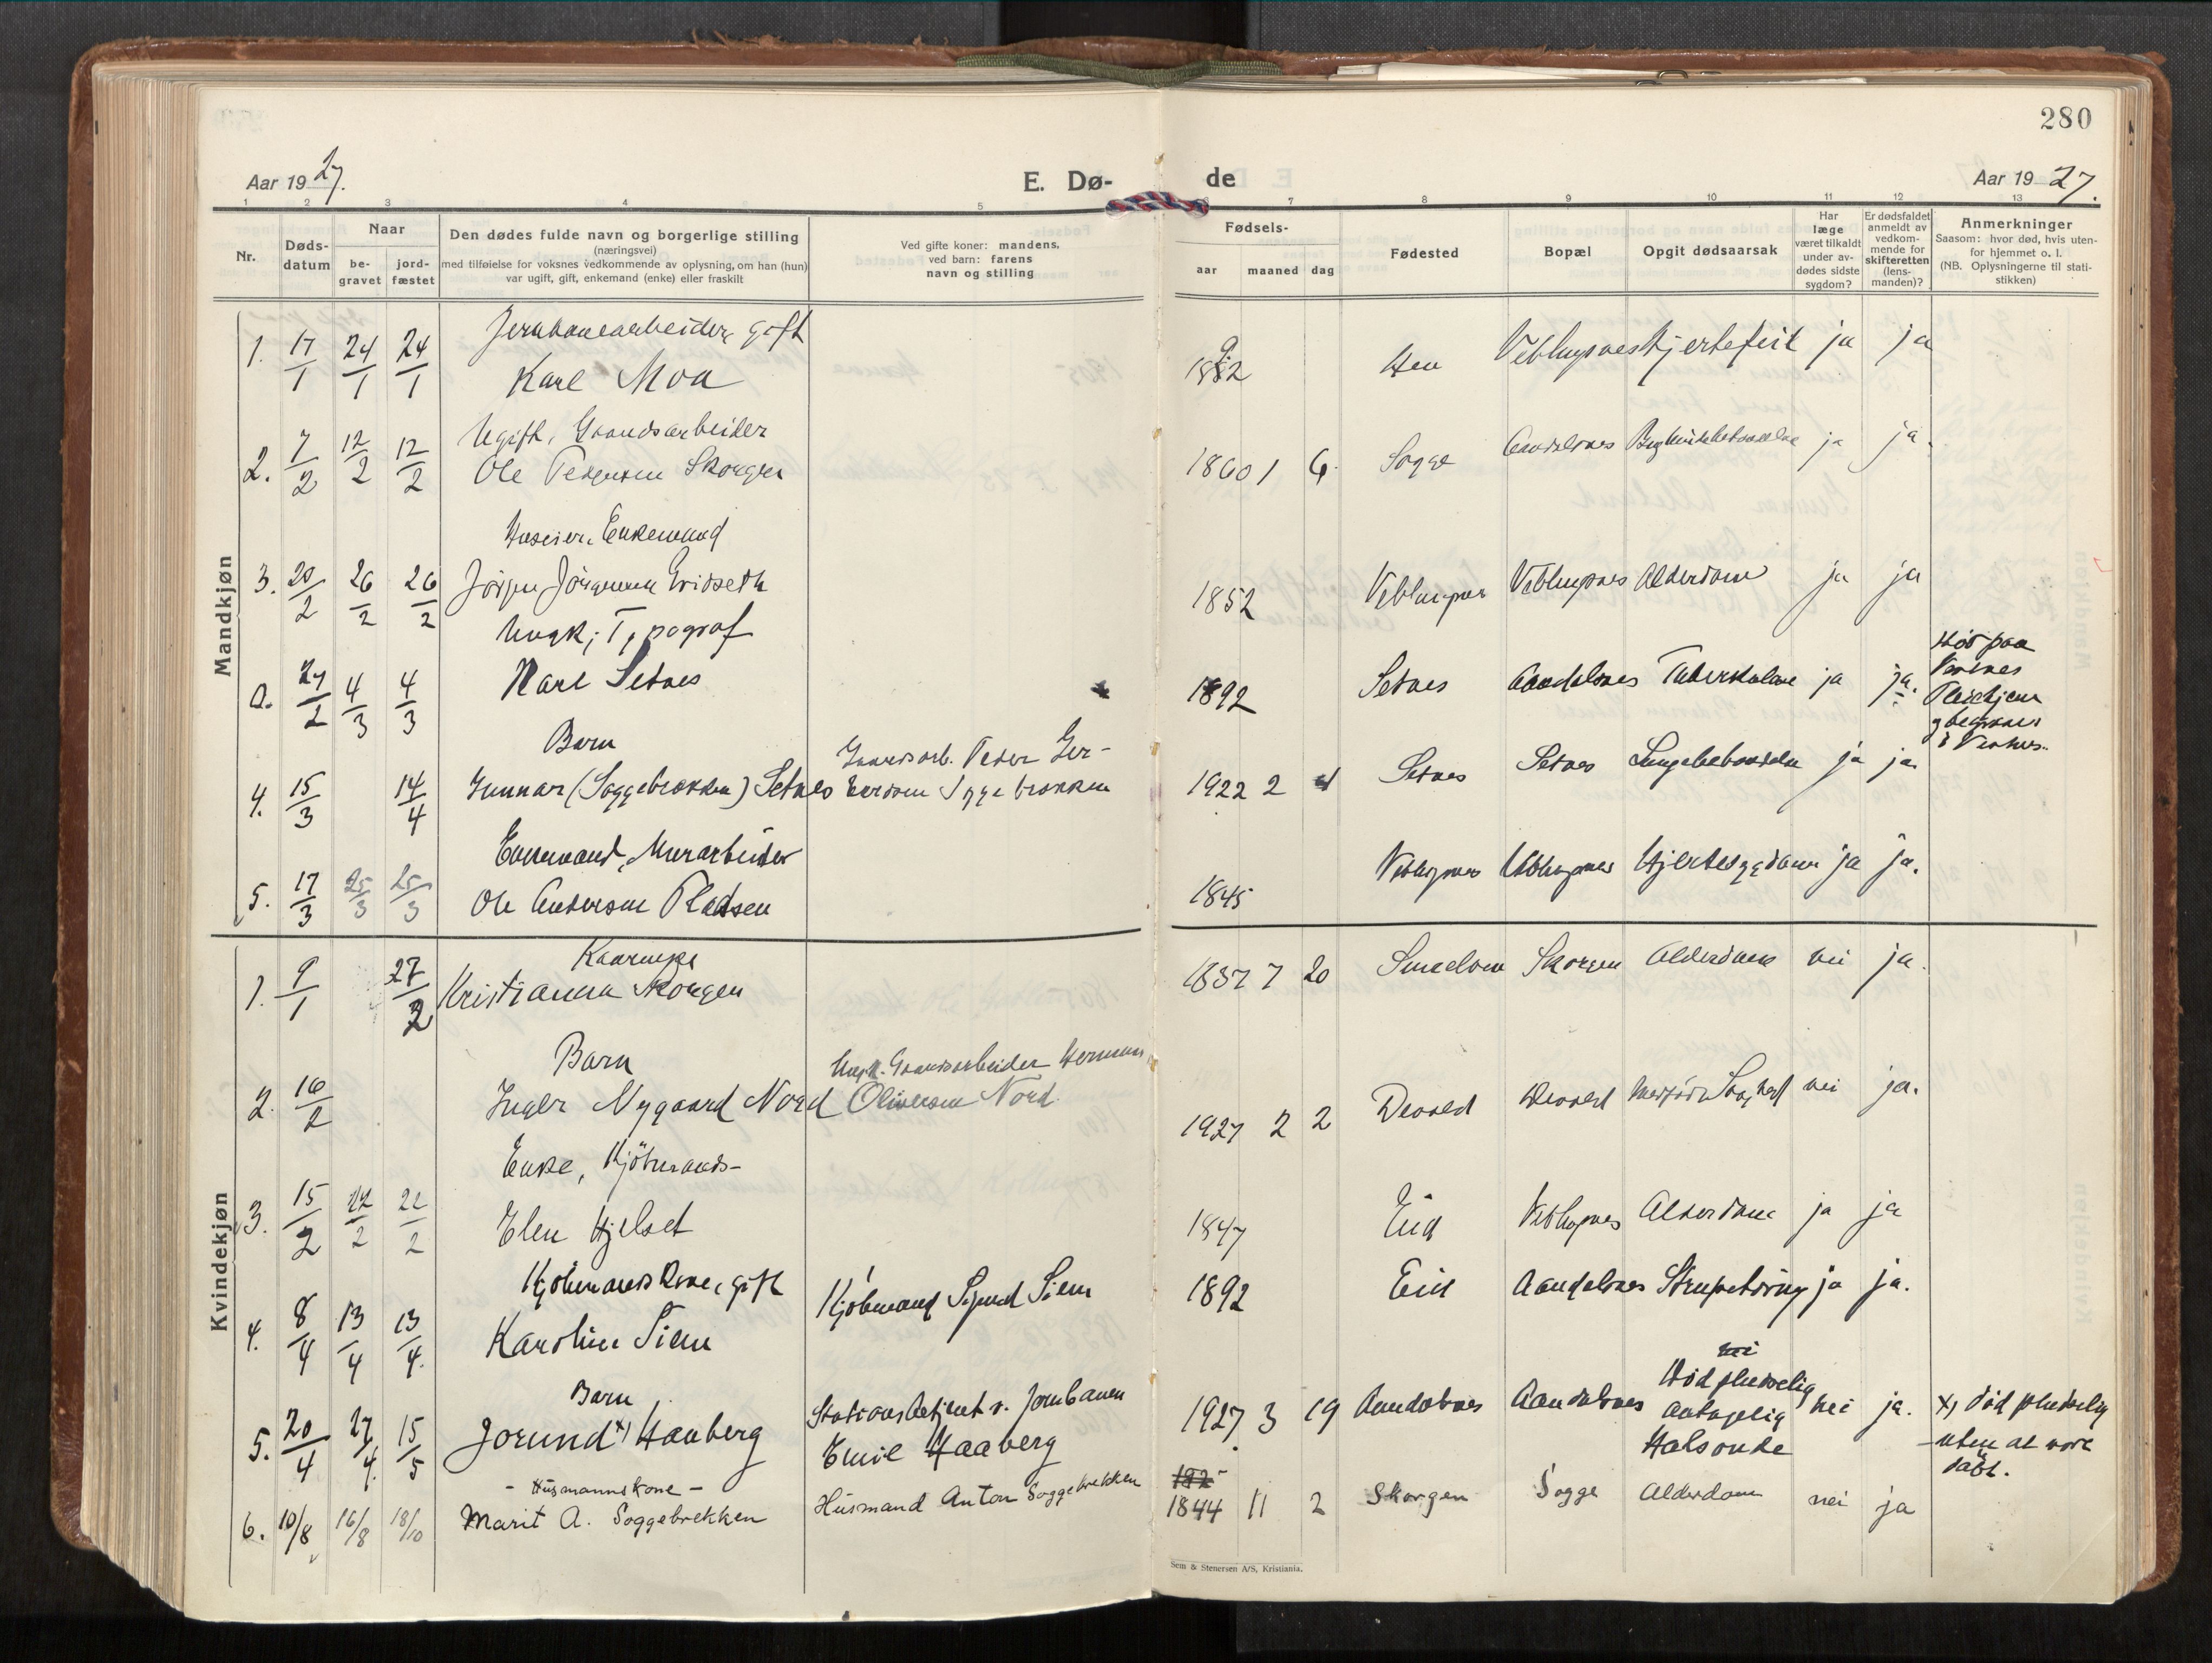 280
Aar 1927.
E. Dø-
de
Aar 1927.
1 2 3 4 5 6 7 8 9 10 11 12 13
Nr.
Døds-
datum
Naar
be-
gravet
jord-
fæstet
Den dødes fulde navn og borgerlige stilling
(næringsvei)
med tilføielse for voksnes vedkommende av oplysning, om han (hun)
var ugift, gift, enkemand (enke) eller fraskilt
Ved gifte koner: mandens,
ved barn: farens
navn og stilling
Fødsels-
aar maaned dag
Fødested
Bopæl
Opgit dødsaarsak
Har
læge
været tilkaldt
under av-
dødes sidste
sygdom?
Er dødsfaldet
anmeldt av
vedkom-
mende for
skifteretten
(lens-
manden)?
Anmerkninger
Saasom: hvor død, hvis uten-
for hjemmet o. l.
(NB. Oplysningerne til stati-
stikken)
Mandkjøn
Jernbanearbeider, gift
1. 17/1 24/1 24/1 Karl Moa 1882 Hen Veblungsnes Hjertefeil ja ja
Ugift, Gaardsarbeider
2. 7/2 12/2 12/2 Ole Pedersen Skorgen 1860 1 6. Sogge Aandalsnes ja ja.
Huseier, Enkemand
3. 20/2 26/2 26/2 Jörgen Jörgensen Eidseth 1852 Veblungsnes Veblungsnes Alderdom ja ja
Ungk; Typograf
0. 27/2 4/3 4/3 Karl Setnes 1892 Setnes Aandalsnes Tuberkulose ja ja.
Död paa
Vestnes
Pleiehjem
og begraves
i Vestnes.
Barn
Gaardsarb. Peder Ger-
4. 15/3 14/4 Gunnar (Soggebrekken) Setnes hardsen Soggebrekken 1922 2 Setnes Setnes Lungebetændelse ja ja.
Enkemand, Murarbeider
5. 17/3 25/3 25/3 Ole Andersen Pladsen 1845 Veblungsnes Veblungsnes Hjertesygdom ja ja.
Kvindekjøn
Kaarenke
1. 9/1 27/2 Kristianna Skorgen 1837 7 20 Skorgen Alderdom nei ja.
Barn
Ungk. Gaardsarbeider Herman
2. 16/2 Inger Nygaard Nord Oliversen Nord. 1927 2 2 Devold Devold nei ja.
Enke, Kjöbmands-
3. 15/2 22/2 22/2 Elen Hjelset 1847 Eid Veblungsnes Alderdom ja ja
Kjöbmandskone, gift
4. 8/4 13/4 13/4. Karoline Siem Kjöbmand Sigurd Siem 1892 Eid Aandalsnes Strupetæring ja ja.
Barn
nei
5. 20/4 27/4. 15/5 Jorund x) Haaberg Stationsbetjent v. Jernbanen
Emil Haaberg 1927 3 19 Aandalsnes Aandalsnes Död pludselig
antagelig
Halsonde nei ja. x) död pludselig
- uten at være
döbt.
- Husmannskone -
182-
6. 10/8 16/8 18/10 Marit A. Soggebrekken Husmand Anton Soggebrekken 1844 11 2 Skorgen Sogge Alderdom nei ja
Sem & Stenersen A/S, Kristiania.